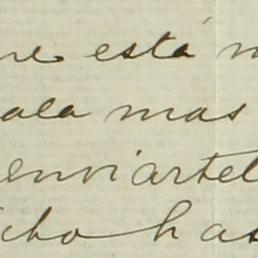 re está
ala mas
enviartel
cho has